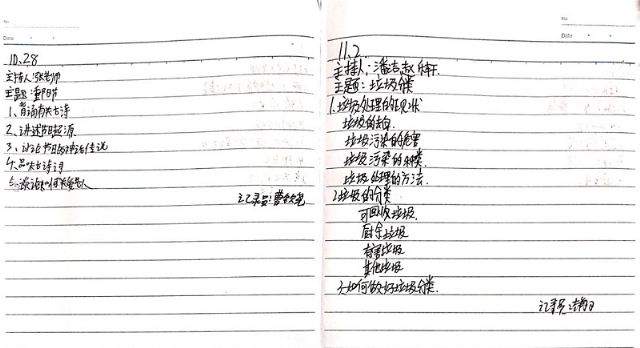 No:
Date
10.28
主持人:张老师
主题:重阳节
1、背诵有关古诗
2、讲述节日起源
3、讨论节日的神话传说
4、品味古诗词
5、谈谈如何关爱老人
记录员:曹
No:
Date
11.2
主持人:潘志赵
主题:垃圾分类
1.垃圾处理的现状
垃圾的
垃圾污染的危害
垃圾污染的种类
垃圾处理的方法.
2.垃圾的分类
可回收垃圾
厨余垃圾
有害垃圾
其他垃圾
3.如何做好垃圾分类.
记录员